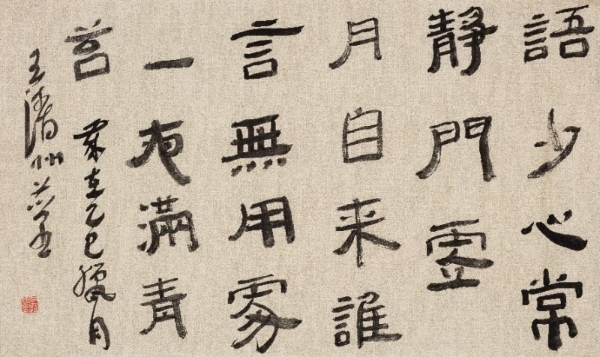 語少心常
靜門虛
月自来誰
言無用處
一夜滿青
苔 歲在乙巳臘月
王州書